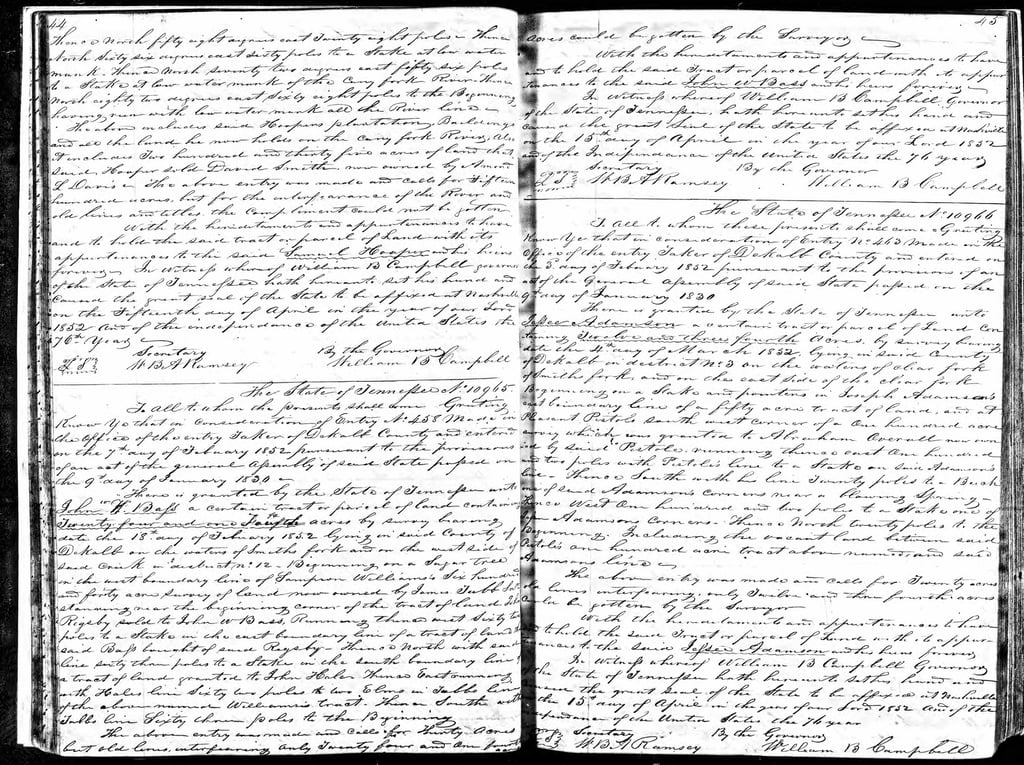 44
thence North fifty eight degrees east Twenty eight poles Thence
North Sixty six degrees east sixty poles to a Stake at low water
mark Thence North seventy two degrees east fifty six poles
to a Stake at low water mark of the Cany fork River Thence
North eighty two degrees east Sixty eight poles to the Beginning
having run with low water mark all the River line
The above includes said Hoopers plantation, Buildings
and all the land he now holds on the Cany fork River, Also
it includes Two hundred and thirty five acres of land that
said Hooper sold David Smith now owned by
L Davis The above entry was made and calls for fifteen
hundred acres, but for the interfearance of the River and
old lines and titles the compliment could not be gotten
With the hereditaments and appurtenances To have
and to hold the said tract or parcel of land with its
appurtenances to the said Samuel Hooper and his heirs
forever In Witness whereof William B Campbell governor
of the State of Tennessee hath hereunto set his hand and
caused the great seal of the State to be affixed at Nashville
on the Fifteenth day of April in the year of our Lord
1852 And of the independance of the United States the
76th Year
Secretary By the Governor
W B A Ramsey William B Campbell
The State of Tennessee No 10965
To all to whom the presents shall come Greeting
Know Ye that in consideration of Entry No 458 Made in
the Office of the entry Taker of DeKalb County and entered
on the 7th day of February 1852 pursuant to the provisions
of an act of the general Assembly of said State passed on
the 9th day of January 1830
There is granted by the State of Tennessee unto
John W Bass a certain tract or parcel of land containing
Twenty four and one fourth acres by survey bearing
date the 18th day of February 1852 Lying in said County of
DeKalb on the waters of Smiths fork and on the west side of
said Creek in district No 12 Beginning on a Sugar tree
in the west boundary line of Sampson Williams's Six hundred
and forty acre survey of land now owned by James Tubb
standing near the beginning corner of the tract of land
Rigsby sold to John W Bass, Running thence west Sixty two
poles to a Stake in the east boundary line of a tract of land
said Bass bought of said Rigsby Thence North with said
line sixty three poles to a Stake in the south boundary line
a tract of land granted to John Hales Thence East running
with Hales line Sixty two poles to two Elms in Tubbs line
of the above named Williams's tract. Thence South with
Tubbs line Sixty three poles to the Beginning
The above entry was made and calls for Thirty Acres
but old lines interfearing only Twenty four and One fourth
45
acres could be gotten by the Surveyor
With the hereditaments and appurtenances to have
and to hold the said Tract or parcel of land with its appur
tenances to the said John W Bass and his heirs forever
In Witness whereof William B Campbell Governor
of the State of Tennessee, hath hereunto set his hand and
caused the great seal of the State to be affixed at Nashville
on the 15th day of April in the year of our Lord 1852
and of the Independance of the United States the 76 year
Secretary By the Governor
W B A Ramsey William B Campbell
The State of Tennessee No 10966
To all to whom these presents shall come Greeting
Know Ye that in consideration of Entry No 463 Made in the
Office of the entry Taker of DeKalb County and entered on
the 3rd day of February 1852 pursuant to the provisions of an
act of the General Assembly of said State passed on the
9th day of January 1830
There is granted by the State of Tennessee unto
Jesse Adamson a certain tract or parcel of Land con
taining Twelve and three fourth Acres by survey bearing
date the day of March 1852 lying in said County
of DeKalb in district No 3 on the waters of clear fork
of Smiths fork, and on the east side of the clear fork
Beginning on a Stake and pointers in Joseph Adamson's
east boundary line of a fifty acre tract of land, and at
Pleasant Pistols south west corner of a One hundred acre
which was granted to Abraham Overall now own
ed by said Pistole running thence east One hundred
and two poles with Pistole's line to a Stake on said Adamson's
line Thence South with his line Twenty poles to a Beech
one of said Adamsons corners near a Blowing Spring
Thence West One hundred and two poles to a Stake one of
Adamson Corners Thence North twenty poles to the
Beginning Including the vacant land between said
Pistoles one hundred acre tract above named and said
Adamsons lines
The above entry was made and calls for Twenty acres
old lines interfearing only Twelve and three fourth acres
could be gotten by the Surveyor
With the hereditaments and appurtenances to have
and to hold the said Tract or parcel of Land with its appur
tenances to the said Jesse Adamson and his heirs forever
In Witness whereof William B Campbell Governor
of the State of Tennessee hath hereunto set his hand and
caused the great seal of the State to be affixed at Nashville
the 15th day of April in the year of our Lord 1852 And of the
Independance of the United States the 76 year
Secretary By the Governor
W B A Ramsey William B Campbell